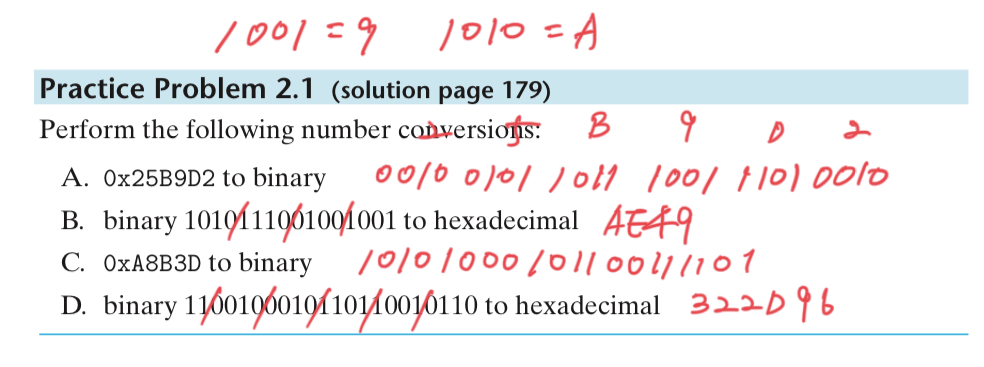 1001 = 9 1010 = A
Practice Problem 2.1 (solution page 179)
Perform the following number conversions: 2 5 B 9 D 2
A. 0x25B9D2 to binary 0010 0101 1011 1001 1101 0010
B. binary 1010111001001001 to hexadecimal AE49
C. 0xA8B3D to binary 10101000101100111101
D. binary 1100100010110110010110 to hexadecimal 322D96